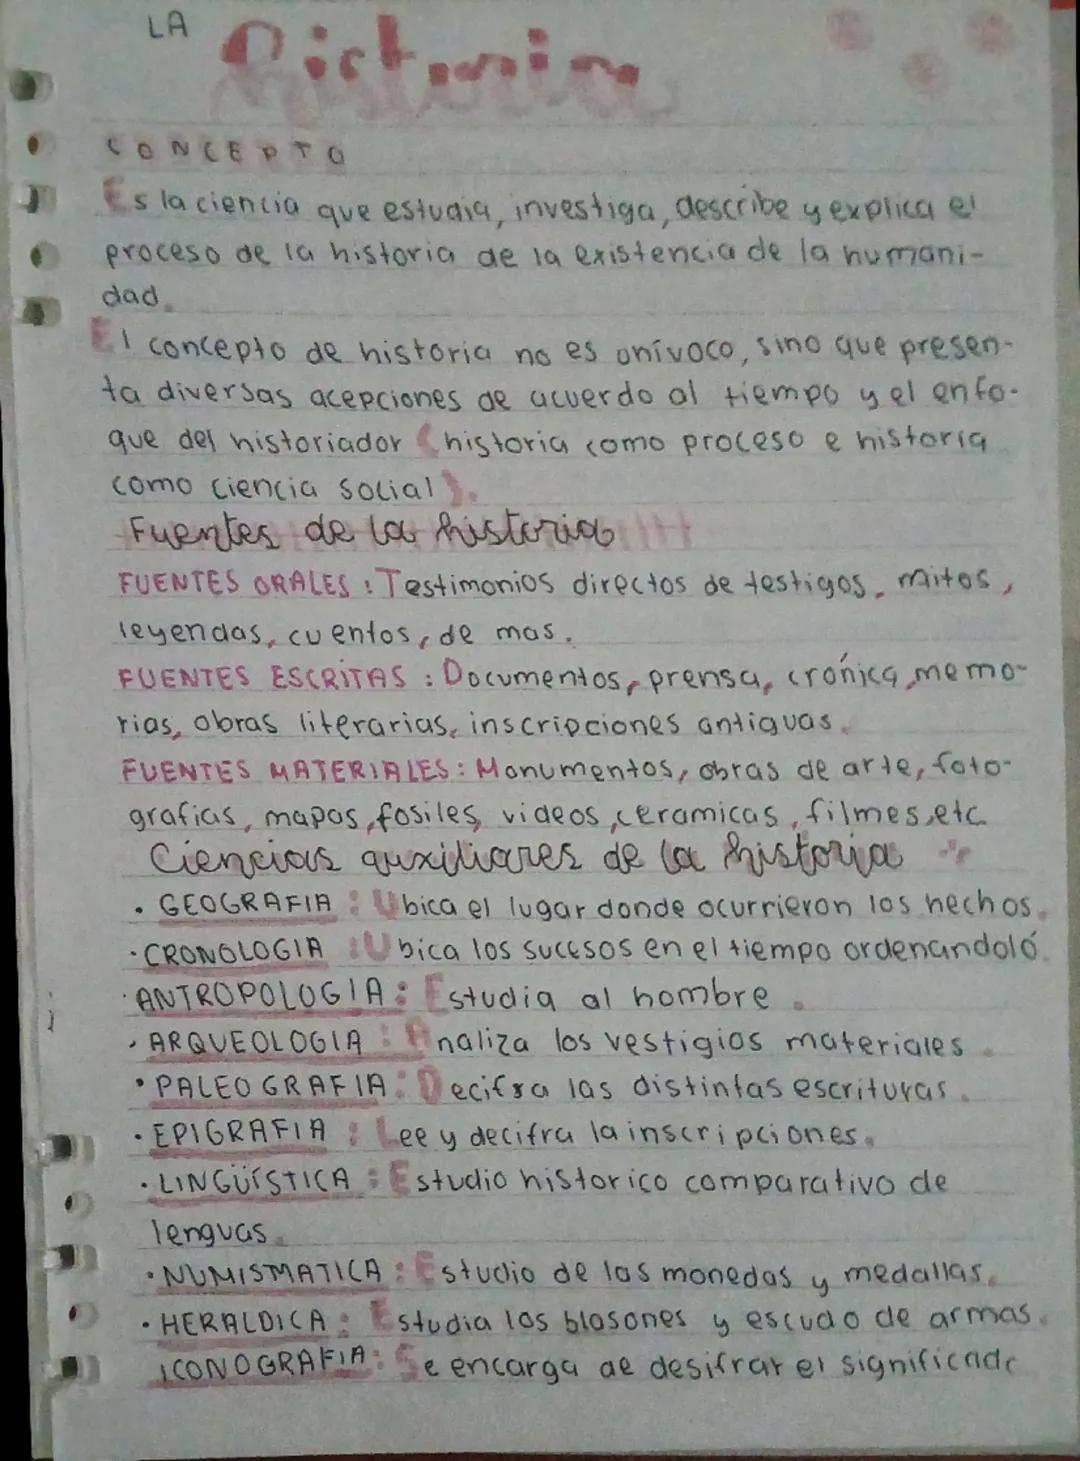 LA
Historia
CONCEPTO
Es la ciencia que estudia, investiga, describe y explica el
proceso de la historia de la existencia de la humani-
dad.
El concepto de historia no es unívoco, sino que presen-
ta diversas acepciones de acuerdo al tiempo y el enfo-
que del historiador (historia como proceso e historia
como ciencia social).
Fuentes de la historia
FUENTES ORALES : Testimonios directos de testigos, mitos,
leyendas, cuentos, de mas.
FUENTES ESCRITAS : Documentos, prensa, crónica, memo-
rias, obras literarias, inscripciones antiguas.
FUENTES MATERIALES : Monumentos, obras de arte, foto-
grafias, mapas, fosiles, videos, ceramicas, filmes, etc
Ciencias auxiliares de la historia
· GEOGRAFIA : Ubica el lugar donde ocurrieron los hechos.
· CRONOLOGIA : Ubica los sucesos en el tiempo ordenandoló.
· ANTROPOLOGIA : Estudia al hombre.
· ARQUEOLOGIA : Analiza los vestigios materiales.
· PALEOGRAFIA : Decifra las distintas escrituras.
· EPIGRAFIA : Lee y decifra la inscripciones.
· LINGÜÍSTICA : Estudio historico comparativo de
lenguas.
· NUMISMATICA : Estudio de las monedas y medallas.
· HERALDICA : Estudia los blasones y escudo de armas.
ICONOGRAFIA : Se encarga de desifrar el significado